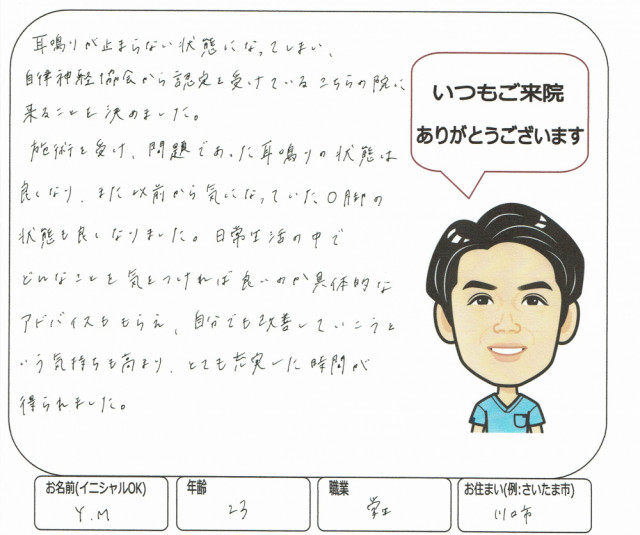 耳鳴りが止まらない状態になってしまい、
自律神経協会から認定を受けているこちらの院に
来ることを決めました。
施術を受け、問題であった耳鳴りの状態は
良くなり、また以前から気になっていたO脚の
状態も良くなりました。日常生活の中で
どんなことを気をつければ良いのか具体的な
アドバイスももらえ、自分でも改善していこうと
いう気持ちも高まり、とても充実した時間が
得られました。
いつもご来院
ありがとうございます
お名前(イニシャルOK)
Y.M
年齢
23
職業
学生
お住まい(例:さいたま市)
川口市